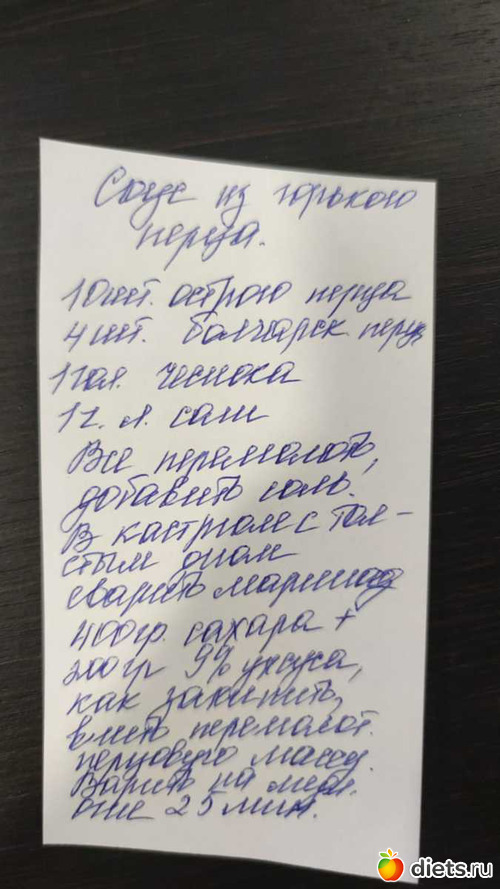 Соус из горького
перца.
10 шт. острого перца
4 шт. болгарск перц
1 гол. чеснока
1 г. л. соли
Все перемолоть,
добавить соль.
В кастрюле с тол-
стым дном
сварить маринад
400 гр. сахара +
200 гр 9% уксуса,
как закипить,
влить перемолот.
перцовую массу.
Варить на медл.
огне 25 мин.
diets.ru